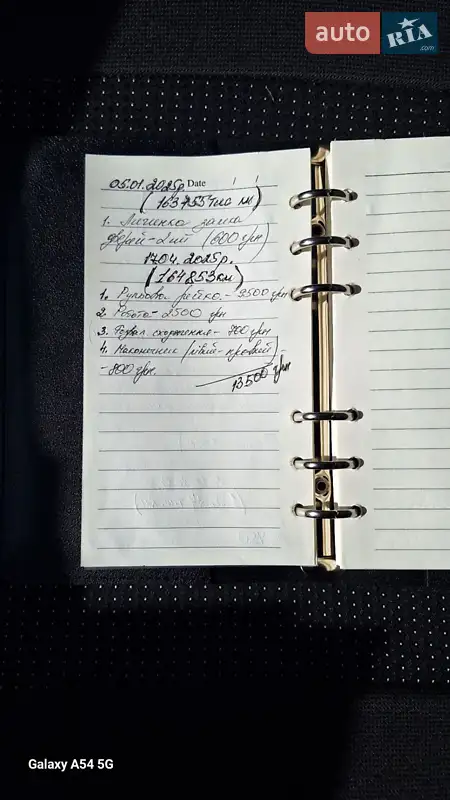 auto RIA .com
05.01.2025р. Date / /
(163755 км)
1. Личинка замка
дверей - 2 шт (600 грн)
17.04.2025р.
(164853 км)
1. Рульова рейка - 9500 грн
2. Робота - 2500 грн
3. Розвал сходження - 700 грн
4. Наконечник (лівий - правий) -
- 800 грн.
13500 грн
Galaxy A54 5G